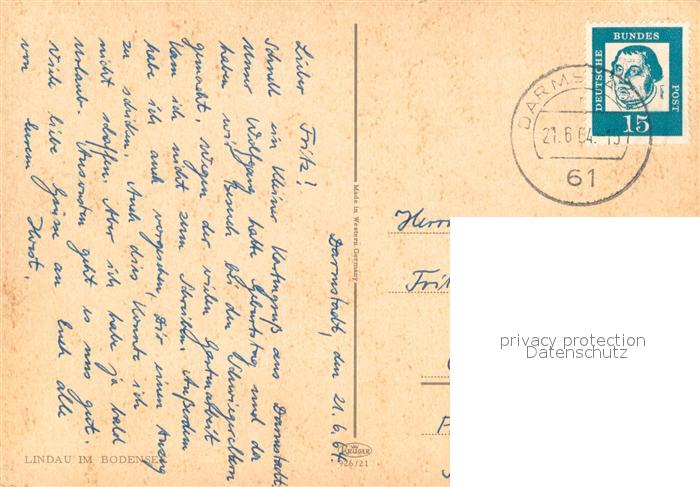 Darmstadt, den 21.6.64.
Lieber Fritz!
Schnell ein kleiner Kartengruß aus Darmstadt.
Unser Wolfgang hatte Geburtstag und da
haben wir Besuch bei den Schwiegereltern
gemacht. Wegen der vielen Gartenarbeit
kam ich nicht zum Schreiben. Außerdem
habe ich auch vorgesehen, Dir einen Anzug
zu schicken. Auch dies konnte ich
nicht schaffen. Aber ich habe ja bald
Urlaub. Ansonsten geht es uns gut.
Viele liebe Grüße an Euch alle
von Eurem Horst.
LINDAU IM BODENSEE
Made in Western Germany
KRÜGER
926/21
DEUTSCHE BUNDESPOST
15
DARMSTADT
21.6.64.
61
Herrn
Frit
privacy protection
Datenschutz